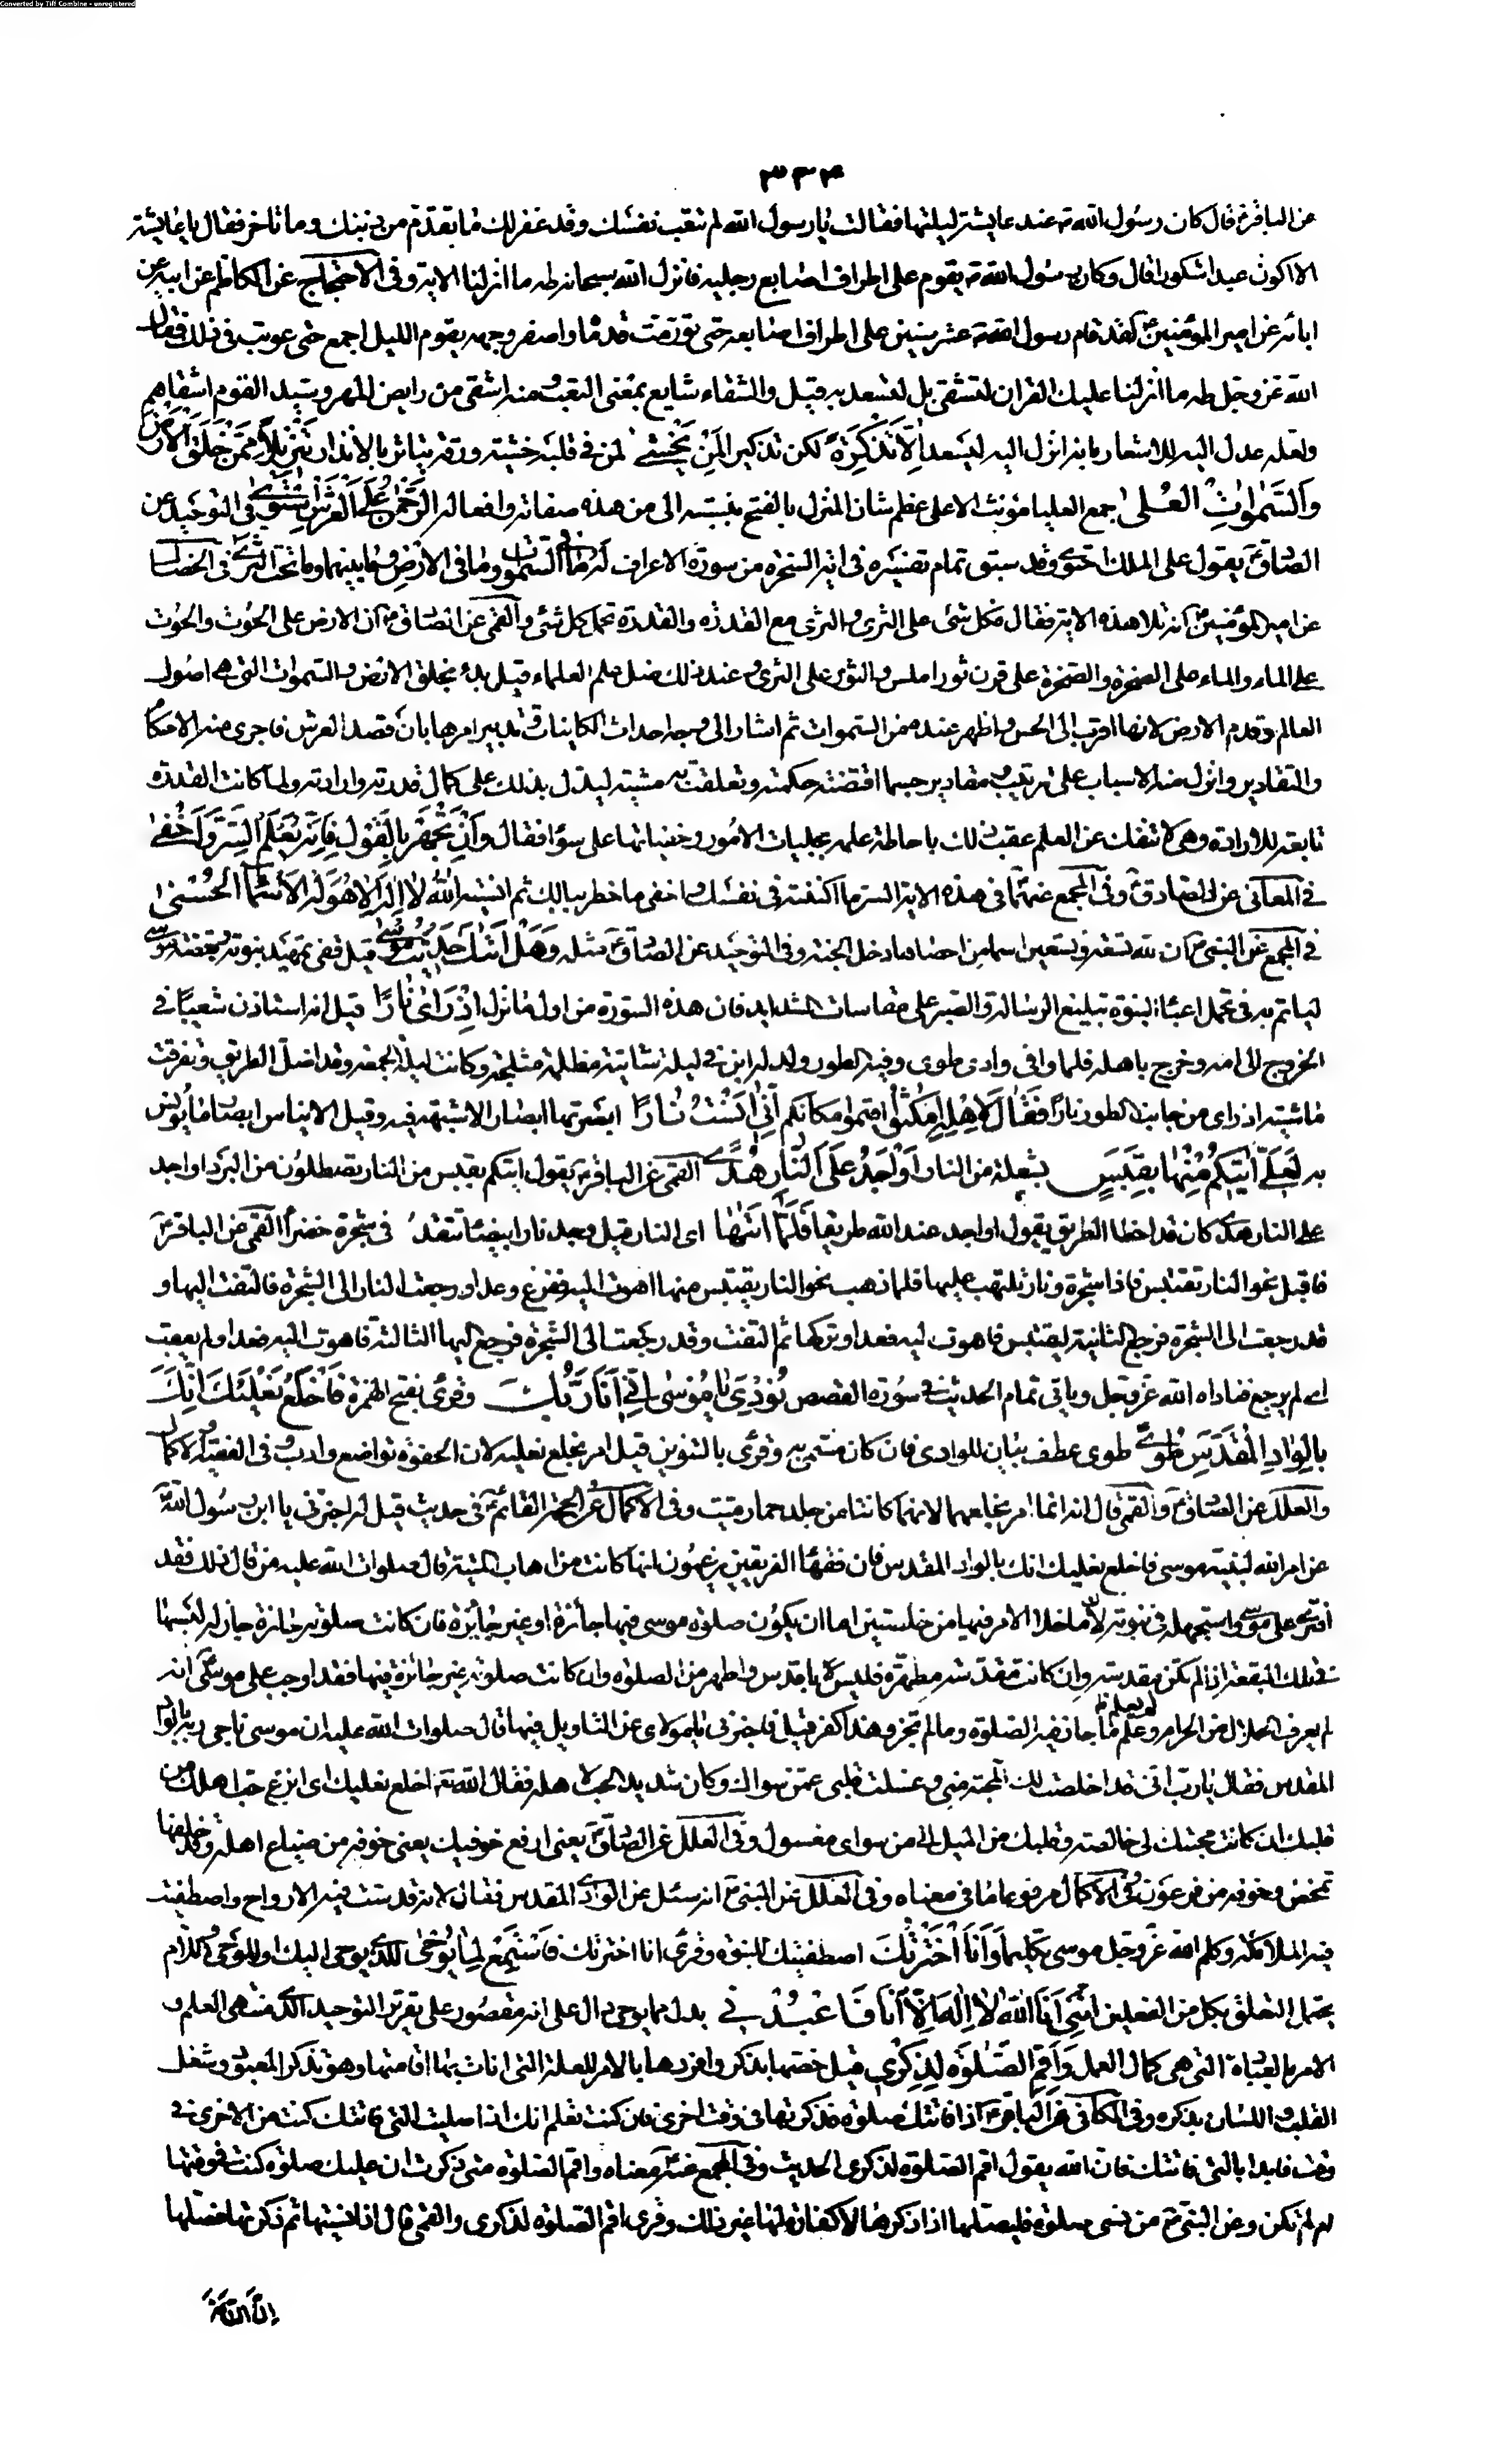 Converted by Tiff Combine - unregistered
٣٣٤
عن الباقر ع قال كان رسول الله ص عند عايشة ليلتها فقالت يا رسول الله لم تتعب نفسك وقد غفر لك ما تقدم من ذنبك وما تاخر فقال يا عايشة
الا اكون عبدا شكورا قال وكان رسول الله ص يقوم على اطراف اصابع رجليه فانزل الله سبحانه طه ما انزلنا الاية وفى الاحتجاج عن الكاظم عن ابيه عن
ابائه عن امير المؤمنين ع لقد قام رسول الله ص عشر سنين على اطراف اصابعه حتى تورمت قدماه واصفر وجهه يقوم الليل اجمع حتى عوتب فى ذلك فقال
الله عز وجل طه ما انزلنا عليك القران لتشقى بل لتسعد به قيل والشقاء شايع بمعنى التعب ومنه اشقى من رايض المهر وسيد القوم اشقاهم
ولعله عدل اليه للاشعار بانه انزل اليه ليسعد اِلّا تَذْكِرَةً لكن تذكيرا لِمَنْ يَخْشى لمن فى قلبه خشية ورقة يتاثر بالانذار تَنْزيلًا مِمَّنْ خَلَقَ الْاَرْضَ
وَالسَّمٰوٰاتِ الْعُلىٰ جمع العليا مؤنث الاعلى عظم شان المنزل بالفتح بنسبته الى من هذه صفاته وافعاله الرَّحْمٰنُ عَلَى الْعَرْشِ اسْتَوىٰ فى التوحيد عن
الصادق ع يقول على الملك احتوى وقد سبق تمام تفسيره فى اية السخرة من سورة الاعراف لَهُ مٰا فى السموات وما فى الارض وما بينهما وما تحت الثرى فى الخصال
عن امير المؤمنين ع انه تلا هذه الاية فقال فكل شئ على الثرى والثرى مع القدرة والقدرة تحمل كل شئ والقمى عن الصادق ع ان الارض على الحوت والحوت
على الماء والماء على الصخرة والصخرة على قرن ثور املس والثور على الثرى وعند ذلك ضل علم العلماء قيل بدء بخلق الارض والسموات التى هى اصول
العالم وقدم الارض لانها اقرب الى الحس واظهر عنده من السموات ثم اشار الى وجه احداث الكاينات وتدبير امرها بان قصد العرش فاجرى منه الاحكام
والتقادير وانزل منه الاسباب على ترتيب ومقادير حسبما اقتضته حكمته وتعلقت به مشيته ليدل بذلك على كمال قدرته وارادته ولما كانت القدرة
تابعة للارادة وهى لا تنفك عن العلم عقب ذلك باحاطة علمه بجليات الامور وخفياتها على سواء فقال وَاِنْ تَجْهَرْ بِالْقَوْلِ فَاِنَّهُ يَعْلَمُ السِّرَّ وَاَخْفىٰ
فى المعانى عن الصادق ع وفى المجمع عنهما فى هذه الاية السر ما اكننته فى نفسك واخفى ما خطر ببالك ثم انسيته اَللّٰهُ لٰا اِلٰهَ اِلّٰا هُوَ لَهُ الْاَسْمٰاءُ الْحُسْنىٰ
فى المجمع عن النبى ص ان لله تسعة وتسعين اسما من احصاها دخل الجنة وفى التوحيد عن الصادق ع مثله وَهَلْ اَتٰاكَ حَديثُ مُوسىٰ قيل قفى تمهيد نبوته بقصة موسى
لياتم به فى تحمل اعباء النبوة وتبليغ الرسالة والصبر على مقاسات الشدايد فان هذه السورة من اول ما نزل اِذْ رَاىٰ نٰارًا قيل انه استاذن شعيبا فى
الخروج الى امه وخرج باهله فلما وافى وادى طوى وفيه الطور ولد له ابن فى ليلة شاتية مظلمة مثلجة وكانت ليلة الجمعة وقد اضل الطريق وتفرقت
ماشيته اذ راى من جانب الطور نارا فَقٰالَ لِاَهْلِهِ امْكُثُوا اقيموا مكانكم اِنّى اٰنَسْتُ نٰارًا ابصرتها ابصارا لا شبهة فيه وقيل الايناس ابصار ما يونس
به لَعَلّى اٰتيكُمْ مِنْهٰا بِقَبَسٍ بشعلة من النار اَوْ اَجِدُ عَلَى النّٰارِ هُدًى القمى عن الباقر ع يقول اتيكم بقبس من النار تصطلون من البرد او اجد
على النار هدى كان قد اخطا الطريق يقول او اجد عند الله طريقا فَلَمّٰا اَتٰيهٰا اى النار قيل وجد نارا بيضاء تتقد فى شجرة خضراء القمى عن الباقر ع
فاقبل نحو النار تقتبس فاذا شجرة ونار تلتهب عليها فلما ذهب نحو النار يقتبس منها اهوت اليه ففزع وعدا ورجعت النار الى الشجرة فالتفت اليها و
قد رجعت الى الشجرة فرجع الثانية ليقتبس فاهوت اليه فعدا وتركها ثم التفت وقد رجعت الى الشجرة فرجع اليها الثالثة فاهوت اليه فعدا ولم يعقب
اى لم يرجع فناداه الله عز وجل وياتى تمام الحديث فى سورة القصص نُودِيَ يٰا مُوسىٰ اِنّى اَنَا رَبُّكَ وقرئ بفتح الهمزة فَاخْلَعْ نَعْلَيْكَ اِنَّكَ
بِالْوٰادِ الْمُقَدَّسِ طُوىً طوى عطف بيان للوادى فان كان مسمى به وقرئ بالتنوين قيل امر بخلع نعليه لان الحفوة تواضع وادب وفى الفقيه والاكمال
والعلل عن الصادق ع والقمى قال انه انما امر بخلعهما لانهما كانتا من جلد حمار ميت وفى الاكمال عن الحجة القائم ع فى حديث قيل له اخبرنى يا ابن رسول الله
عن امر الله لنبيه موسى فاخلع نعليك انك بالواد المقدس فان فقهاء الفريقين يزعمون انها كانت من اهاب الميتة قال صلوات الله عليه من قال ذلك فقد
افترى على موسى واستجهله فى نبوته لانه ما خلا الامر فيها من خصلتين اما ان يكون صلوة موسى فيها جائزة او غير جائزة فان كانت صلوته جائزة جاز له لبسها
فى تلك البقعة اذ لم تكن مقدسة وان كانت مقدسة مطهرة فليس باقدس واطهر من الصلوة وان كانت صلوته غير جائزة فيها فقد اوجب على موسى انه
لم يعرف الحلال من الحرام وعلم ما جاز فيه الصلوة وما لم تجز وهذا كفر قيل فاخبرنى يا مولاى عن التاويل فيها قال صلوات الله عليه ان موسى ناجى ربه بالواد
المقدس فقال يا رب انى قد اخلصت لك المحبة منى وغسلت قلبى عمن سواك وكان شديد الحب لاهله فقال الله تعالى اخلع نعليك اى انزع حب اهلك من
قلبك ان كانت محبتك لى خالصة وقلبك من الميل الى من سواى مغسول وفى العلل عن الصادق ع يعنى ارفع خوفيك يعنى خوفه من ضياع اهله وقد خلفها
تمخض وخوفه من فرعون وفى الاكمال مرفوعا ما فى معناه وفى العلل عن النبى ص انه سئل عن الواد المقدس فقال لانه قدست فيه الارواح واصطفيت
فيه الملائكة وكلم الله عز وجل موسى تكليما وَاَنَا اخْتَرْتُكَ اصطفيتك للنبوة وقرئ انا اخترناك فَاسْتَمِعْ لِمٰا يُوحىٰ للذى يوحى اليك او للوحى واللام
يحتمل التعلق بكل من الفعلين اِنَّنى اَنَا اللّٰهُ لٰا اِلٰهَ اِلّٰا اَنَا فَاعْبُدْنى بدل مما يوحى دال على انه مقصور على تقرير التوحيد الذى منتهى العلم و
الامر بالعبادة التى هى كمال العمل وَاَقِمِ الصَّلٰوةَ لِذِكْرى قيل خصها بذكر وافردها بالامر للعلة التى اناط بها اقامتها وهو تذكر المعبود وشغل
القلب واللسان بذكره وفى الكافى عن الباقر ع اذا فاتتك صلوة فذكرتها فى وقت اخرى فان كنت تعلم انك اذا صليت التى فاتتك كنت من الاخرى فى
وقت فابدا بالتى فاتتك فان الله يقول اقم الصلوة لذكرى الحديث وفى المجمع عنه ع معناه واقم الصلوة متى ذكرت ان عليك صلوة كنت فى وقتها
ام لم تكن وعن النبى ص من نسى صلوة فليصلها اذا ذكرها لا كفارة لها غير ذلك وقرئ اقم الصلوة لذكرى والقمى قال اذا نسيتها ثم ذكرتها فصلها